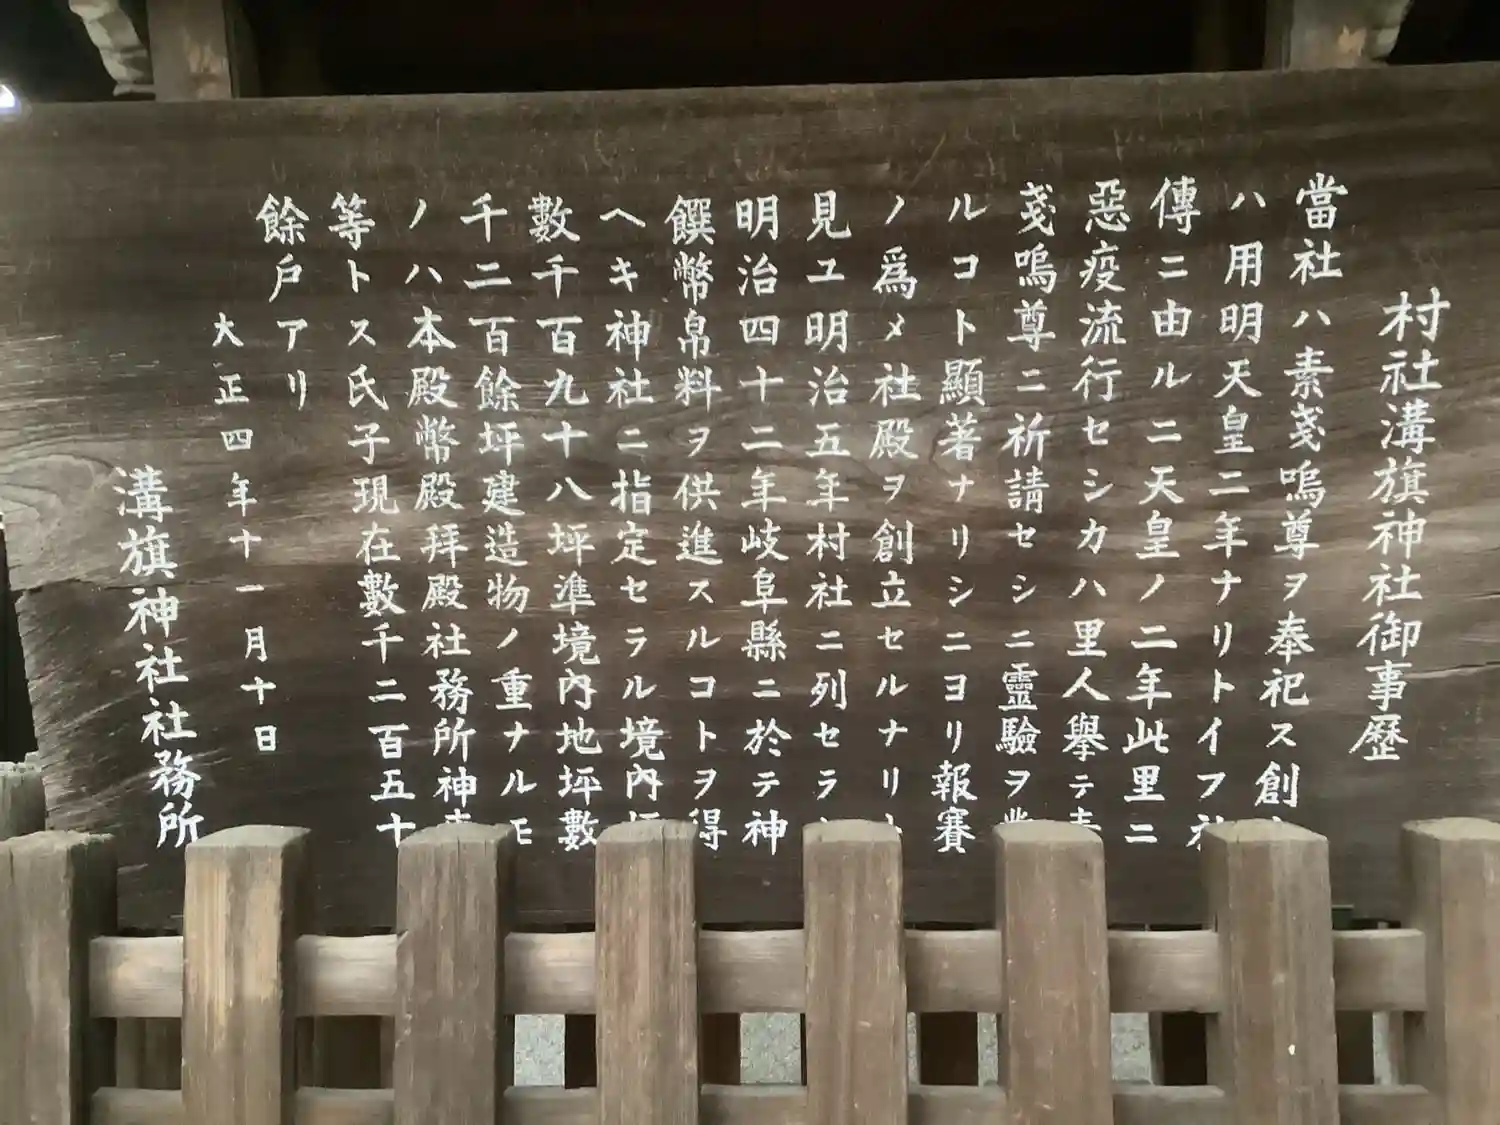 村社溝旗神社御事歴
當社ハ素戔嗚尊ヲ奉祀ス創
ハ用明天皇二年ナリトイフ社
傳ニ由ルニ天皇ノ二年此里ニ
惡疫流行セシカハ里人擧テ素
戔嗚尊ニ祈請セシニ靈驗ヲ
ルコト顯著ナリシニヨリ報賽
ノ爲メ社殿ヲ創立セルナリ
見ユ明治五年村社ニ列セラ
明治四十二年岐阜縣ニ於テ神
饌幣帛料ヲ供進スルコトヲ得
ヘキ神社ニ指定セラル境內
數千百九十八坪準境內地坪數
千二百餘坪建造物ノ重ナルモ
ノハ本殿幣殿拜殿社務所神
等トス氏子現在數千二百五十
餘戶アリ
大正四年十一月十日
溝旗神社社務所